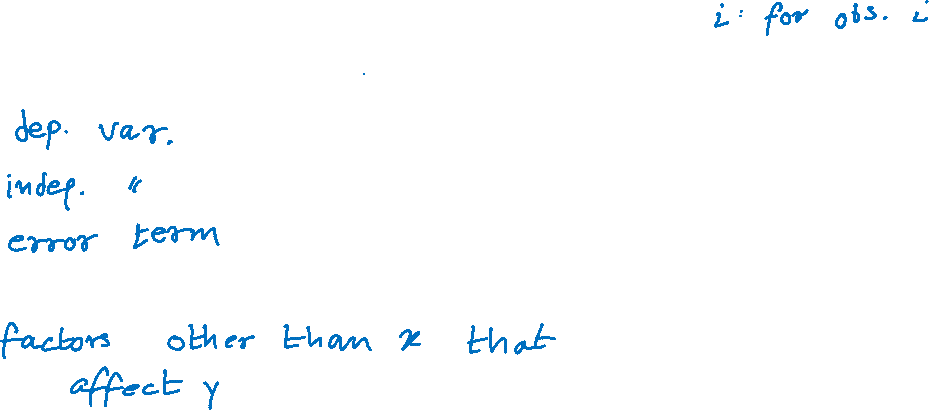 i: for obs. i
dep. var.
indep. "
error term
factors other than x that
affect y